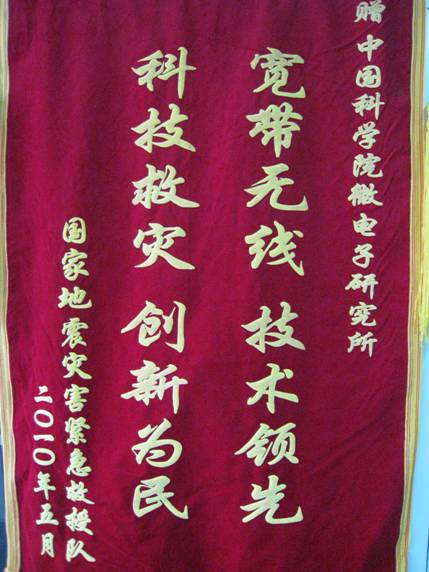 赠 中国科学院微电子研究所
宽带无线 技术领先
科技救灾 创新为民
国家地震灾害紧急救援队
二〇一〇年五月